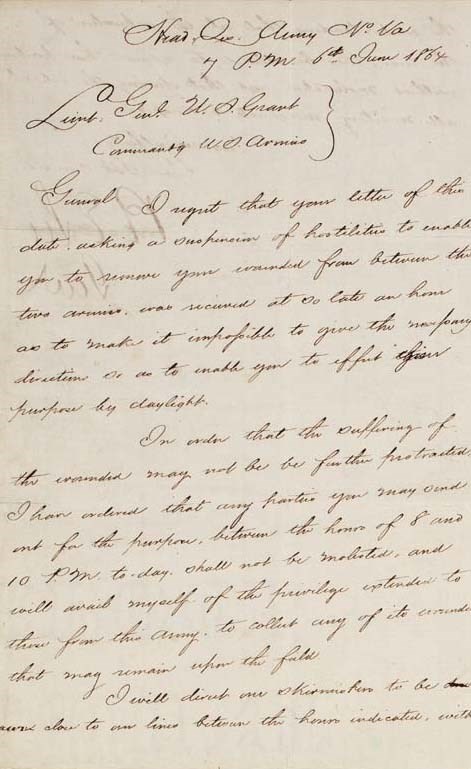 Head Qrs Army No Va
7 P.M. 6th June 1864
Lieut. Genl U. S. Grant
Commandg U. S. Armies
General I regret that your letter of this
date asking a suspension of hostilities to enable
you to remove your wounded from between the
two armies was received at so late an hour
as to make it impossible to give the necessary
directions so as to enable you to effect your
purpose by daylight.
In order that the suffering of
the wounded may not be be further protracted,
I have ordered that any parties you may send
out for the purpose, between the hours of 8 and
10 P.M. to-day shall not be molested, and
will avail myself of the privilege extended to
those from this Army, to collect any of its wounde
that may remain upon the field
I will direct our skirmishers to be
close to our lines between the hours indicated, with